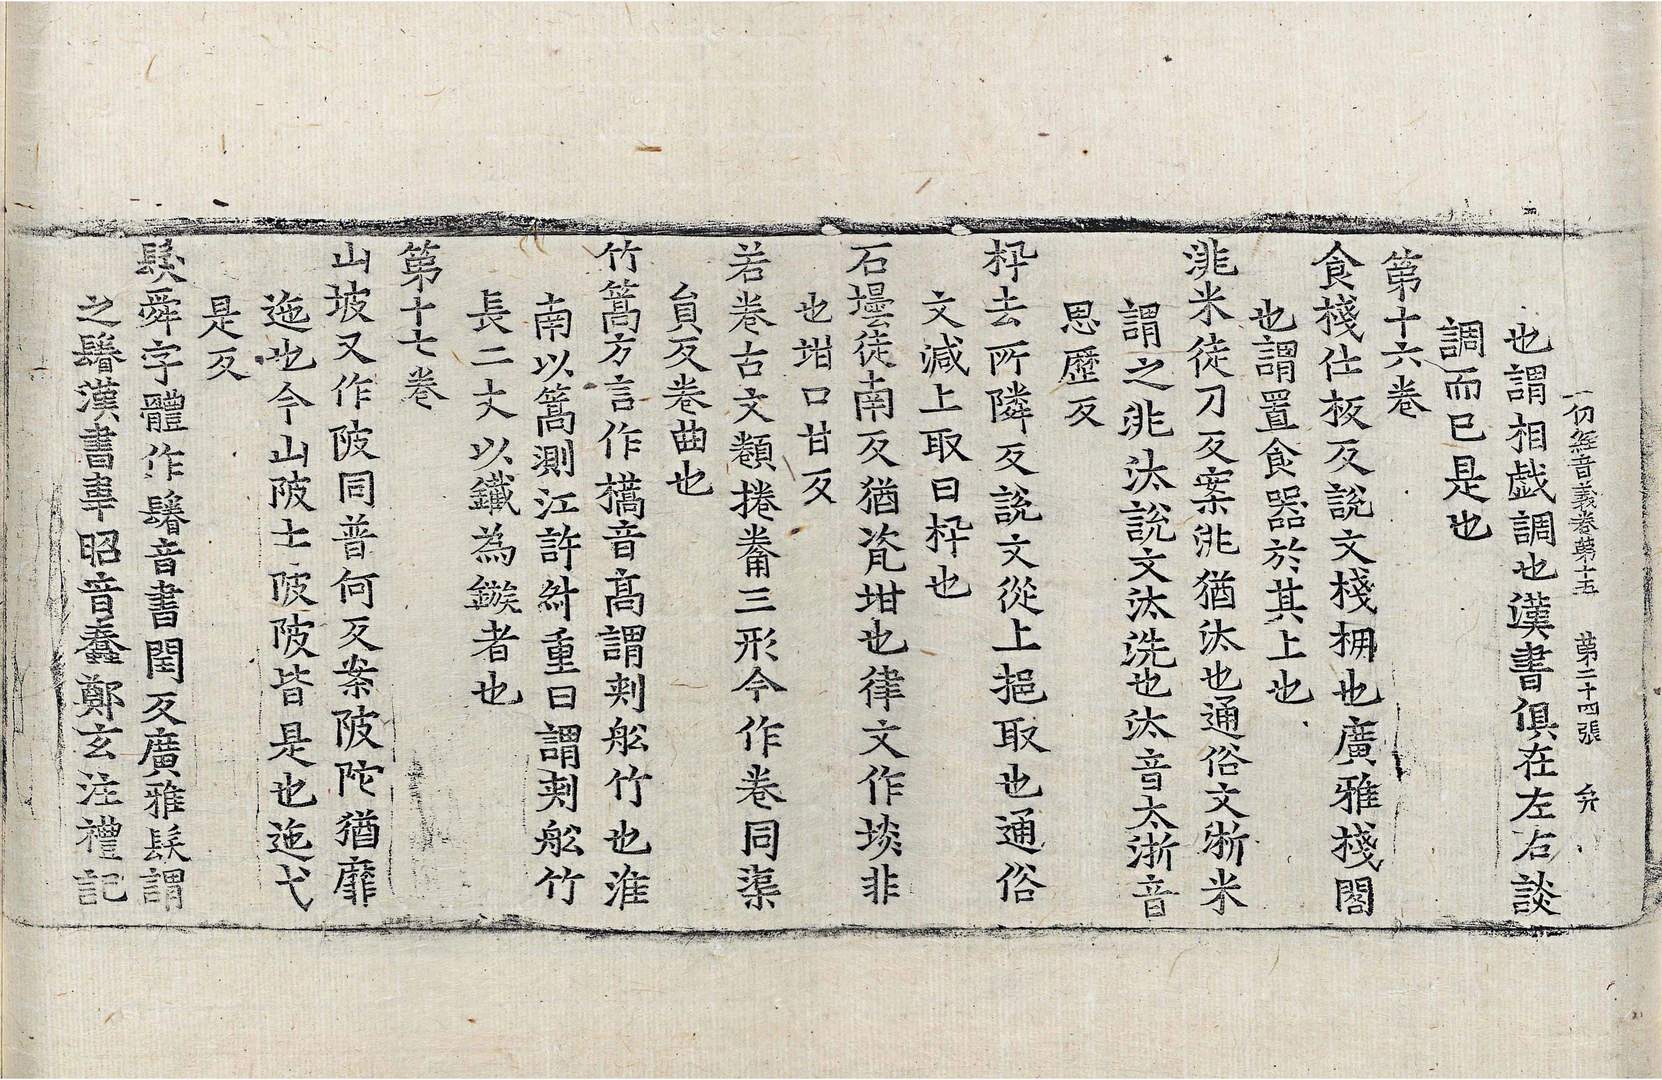 一切經音義卷第十五 第二十四張 弁
也謂相戲調也漢書俱在左右談
調而已是也
第十六卷
食棧仕板反說文棧棚也廣雅棧閣
也謂置食器於其上也
洮米徒刀反案洮猶汰也通俗文淅米
謂之洮汰說文汰洗也汰音太淅音
思歷反
枰去所隣反說文從上挹取也通俗
文減上取曰枰也
石壜徒南反猶瓮坩也律文作埮非
也坩口甘反
若卷古文𩔊捲觠三形今作卷同渠
負反卷曲也
竹篙方言作㰏音高謂刾舩竹也淮
南以篙測江許紂重曰謂刾舩竹
長二丈以鐵為鏃者也
第十七卷
山坡又作陂同普何反案陂陀猶靡
迤也今山陂士陂陂皆是也迤弋
是反
鬀舜字體作鬊音書閏反廣雅髲謂
之鬊漢書韋昭音蠢鄭玄注禮記